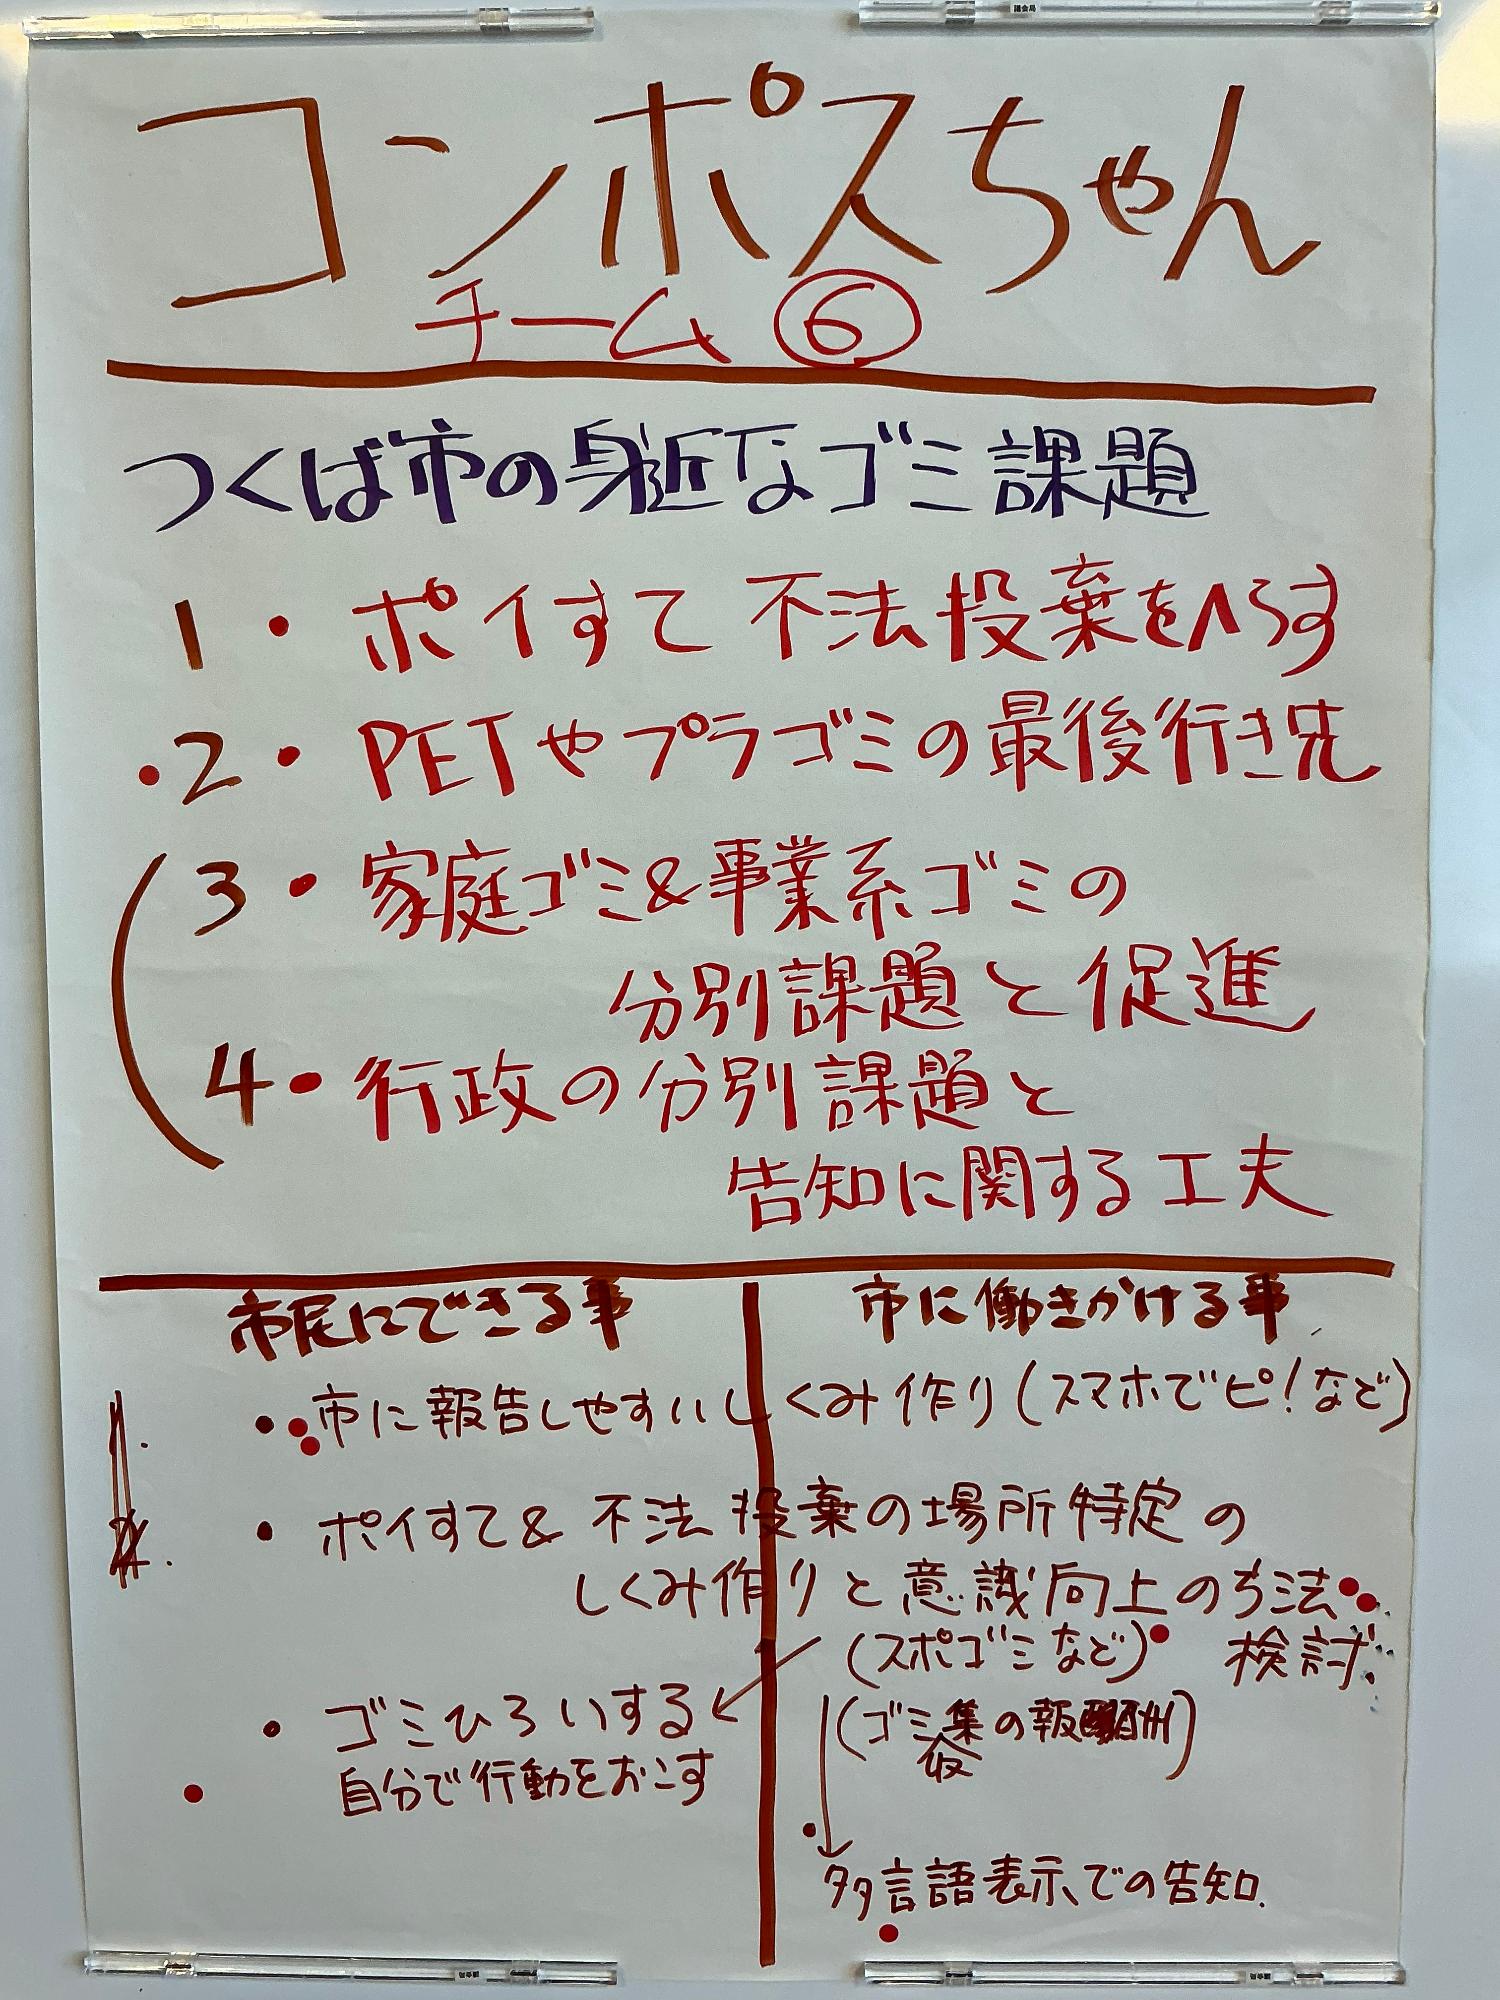 コンポスちゃん
チーム⑥
つくば市の身近なゴミ課題
1・ポイすて 不法投棄をへらす
・2・PETやプラゴミの最後行き先
(3・家庭ゴミ&事業系ゴミの
分別課題と促進
4・行政の分別課題と
告知に関する工夫
市民にできる事
市に働きかける事
・市に報告しやすいしくみ作り(スマホでピ!など)
・ポイすて&不法投棄の場所特定の
しくみ作りと意識向上の方法
(スポゴミなど) 検討
・ゴミひろいする
自分で行動をおこす
(ゴミ収集の報酬)
・多言語表示での告知.
議会局
議会局
議会局